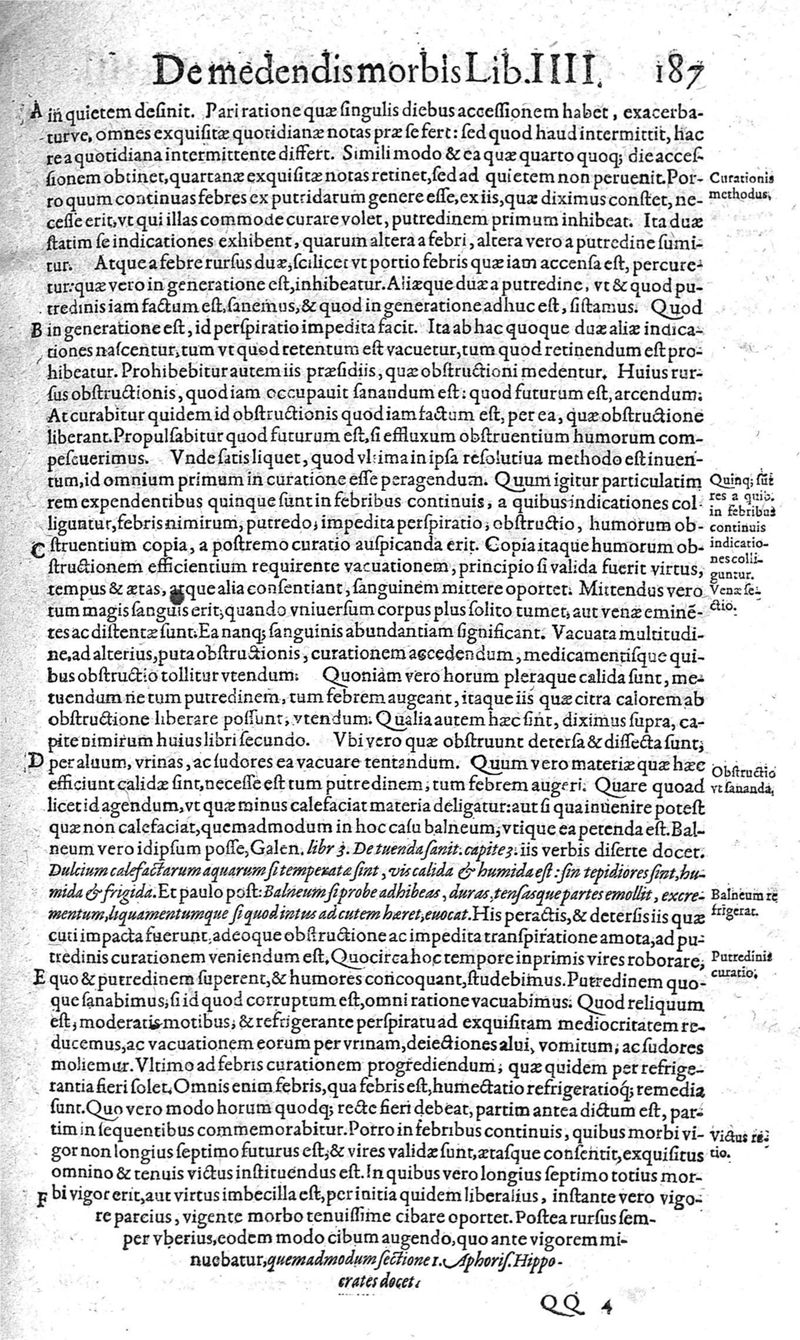 De medendis morbis Lib. IIII. 187
A in quietem desinit. Pari ratione quæ singulis diebus accessionem habet, exacerba-
turve, omnes exquisitæ quotidianæ notas præ se fert: sed quod haud intermittit, hac
re a quotidiana intermittente differt. Simili modo & ea quæ quarto quoq; die acces-
sionem obtinet, quartanæ exquisitæ notas retinet, sed ad quietem non peruenit. Por-
Curationis
ro quum continuas febres ex putridarum genere esse, ex iis, quæ diximus constet, ne-
methodus.
cesse erit, vt qui illas commode curare volet, putredinem primum inhibeat. Ita duæ
statim se indicationes exhibent, quarum altera a febri, altera vero a putredine sumi-
tur. Atque a febre rursus duæ, scilicet vt portio febris quæ iam accensa est, percure-
tur: quæ vero in generatione est, inhibeatur. Aliæque duæ a putredine, vt & quod pu-
tredinis iam factum est, sanemus, & quod in generatione adhuc est, sistamus. Quod
B in generatione est, id perspiratio impedita facit. Ita ab hac quoque duæ aliæ indica-
tiones nascentur, tum vt quod retentum est vacuetur, tum quod retinendum est pro-
hibeatur. Prohibebitur autem iis præsidiis, quæ obstructioni medentur. Huius rur-
sus obstructionis, quod iam occupauit sanandum est: quod futurum est, arcendum.
At curabitur quidem id obstructionis quod iam factum est, per ea, quæ obstructione
liberant. Propulsabitur quod futurum est, si effluxum obstruentium humorum com-
pescuerimus. Vnde satis liquet, quod vltima in ipsa resolutiua methodo est inuen-
tum, id omnium primum in curatione esse peragendum. Quum igitur particulatim
Quinq; sūt
rem expendentibus quinque sunt in febribus continuis, a quibus indicationes col-
res a quib.
in febribus
liguntur, febris nimirum, putredo, impedita perspiratio, obstructio, humorum ob-
continuis
C struentium copia, a postremo curatio auspicanda erit. Copia itaque humorum ob-
indicatio-
nes colli-
structionem efficientium requirente vacuationem, principio si valida fuerit virtus,
guntur.
tempus & ætas, atque alia consentiant, sanguinem mittere oportet. Mittendus vero
Venæ se-
tum magis sanguis erit, quando vniuersum corpus plus solito tumet, aut venæ eminē-
ctio.
tes ac distentæ sunt. Ea nanq; sanguinis abundantiam significant. Vacuata multitudi-
ne, ad alterius, puta obstructionis, curationem accedendum, medicamentisque qui-
bus obstructio tollitur vtendum. Quoniam vero horum pleraque calida sunt, me-
tuendum ne tum putredinem, tum febrem augeant, itaque iis quæ citra calorem ab
obstructione liberare possunt, vtendum. Qualia autem hæc sint, diximus supra, ca-
pite nimirum huius libri secundo. Vbi vero quæ obstruunt detersa & dissecta sunt,
D per aluum, vrinas, ac sudores ea vacuare tentandum. Quum vero materiæ quæ hæc
Obstructio
efficiunt calidæ sint, necesse est tum putredinem, tum febrem augeri. Quare quoad
vt sananda.
licet id agendum, vt quæ minus calefaciat materia deligatur: aut si qua inuenire potest
quæ non calefaciat, quemadmodum in hoc casu balneum, vtique ea petenda est. Bal-
neum vero id ipsum posse, Galen. libr 3. De tuenda sanit. capite 3. iis verbis diserte docet.
Dulcium calefactarum aquarum si temperatæ sint, vis calida & humida est: sin tepidiores sint, hu-
mida & frigida. Et paulo post: Balneum si probe adhibeas, duras, tensasque partes emollit, excre-
Balneum re
mentum, liquamentumque si quod intus ad cutem hæret, euocat. His peractis, & detersis iis quæ
frigerat.
cuti impacta fuerunt, adeoque obstructione ac impedita transpiratione amota, ad pu-
tredinis curationem veniendum est. Quocirca hoc tempore inprimis vires roborare,
Putredinis
E quo & putredinem superent, & humores concoquant, studebimus. Putredinem quo-
curatio.
que sanabimus, si id quod corruptum est, omni ratione vacuabimus. Quod reliquum
est, moderatis motibus, & refrigerante perspiratu ad exquisitam mediocritatem re-
ducemus, ac vacuationem eorum per vrinam, deiectiones alui, vomitum, ac sudores
moliemur. Vltimo ad febris curationem progrediendum, quæ quidem per refrige-
rantia fieri solet. Omnis enim febris, qua febris est, humectatio refrigeratioq; remedia
sunt. Quo vero modo horum quodq; recte fieri debeat, partim antea dictum est, par-
tim in sequentibus commemorabitur. Porro in febribus continuis, quibus morbi vi-
Victus ra-
gor non longius septimo futurus est, & vires validæ sunt, ætasque consentit, exquisitus
tio.
omnino & tenuis victus instituendus est. In quibus vero longius septimo totius mor-
F bi vigor erit, aut virtus imbecilla est, per initia quidem liberalius, instante vero vigo-
re parcius, vigente morbo tenuissime cibare oportet. Postea rursus sem-
per vberius, eodem modo cibum augendo, quo ante vigorem mi-
nuebatur, quemadmodum sectione 1. Aphoris. Hippo-
crates docet.
QQ 4